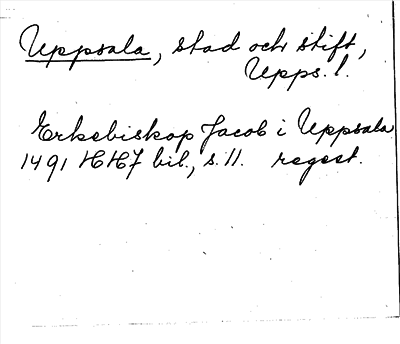 Uppsala, stad och stift,
Upps. l.
Erkebiskop Jacob i Uppsala
1491 HH7 bil., s. 11. regest.